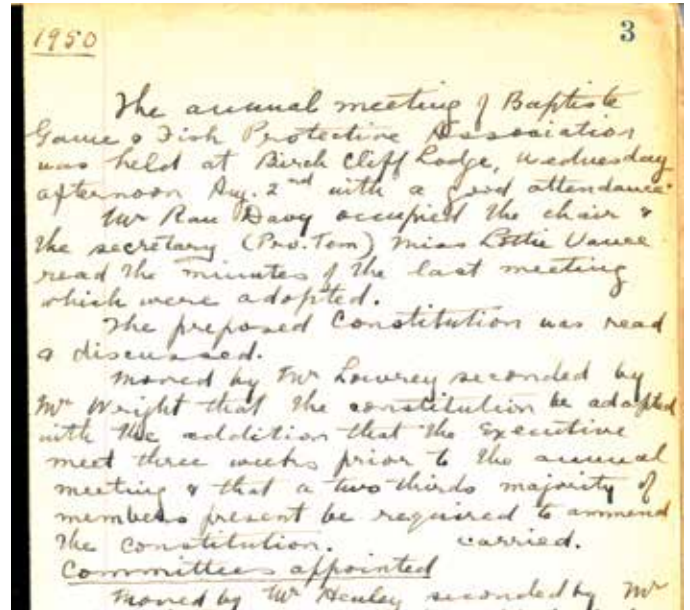 1950
3
The annual meeting of Baptiste
Game & Fish Protective Association
was held at Birch Cliff Lodge, Wednesday
afternoon Aug. 2nd with a good attendance.
Mr Davy occupied the chair &
the secretary (Pro. Tem) Miss Lottie Vance
read the minutes of the last meeting
which were adopted.
The preposed Constitution was read
& discussed.
Moved by Mr Lowrey seconded by
Mr Wright that the constitution be adopted
with the addition that the Executive
meet three weeks prior to the annual
meeting & that a two thirds majority of
members present be required to ammend
the Constitution. carried.
Committees appointed
Moved by Mr Henley seconded by Mr